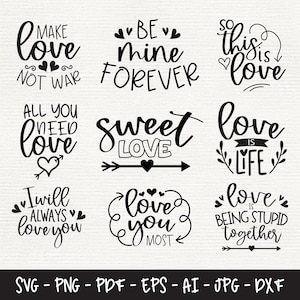 MAKE
love
NOT WAR
BE
mine
FOREVER
SO
this
is
love
ALL YOU
NEED
love
sweet
LOVE
love
IS
LIFE
I will
ALWAYS
love you
love
you
MOST
love
is
BEING STUPID
together
SVG - PNG - PDF - EPS - AI - JPG - DXF